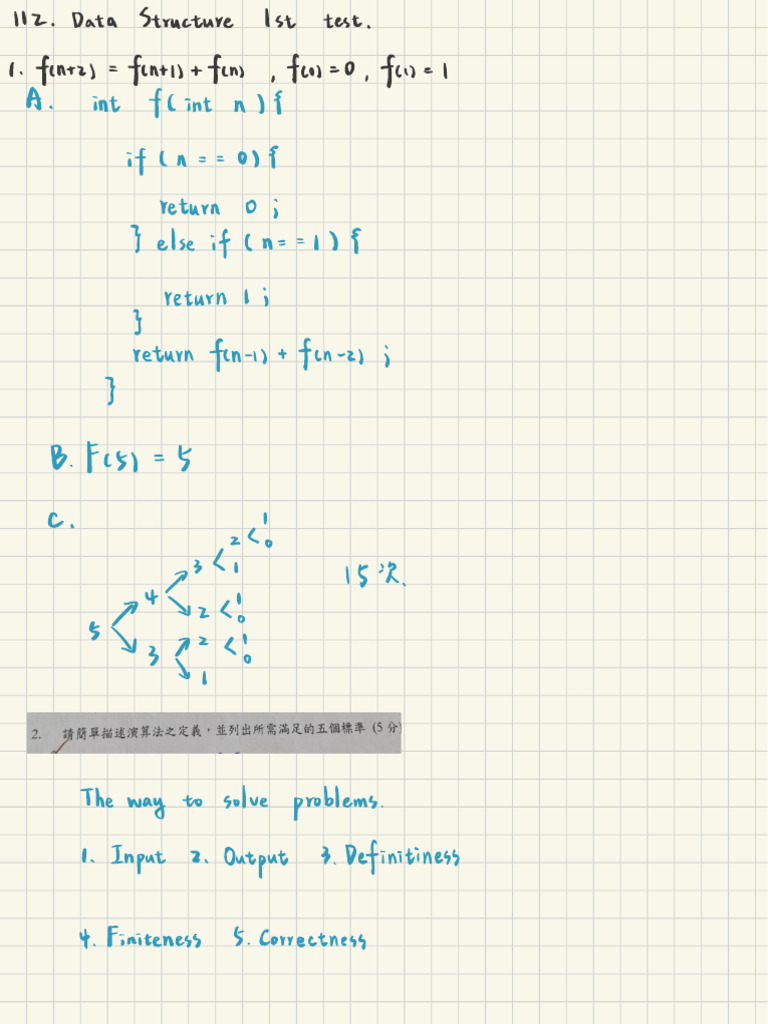 112. Data Structure 1st test.
1. f(n+2) = f(n+1) + f(n) , f(0) = 0 , f(1) = 1
A. int f( int n ) {
if ( n == 0 ) {
return 0 ;
} else if ( n == 1 ) {
return 1 ;
}
return f(n-1) + f(n-2) ;
}
B. F(5) = 5
C.
1
2 < 0
3 < 1
4
2 < 1 0
5
2 < 1 0
3
1
15次.
2. 請簡單描述演算法之定義,並列出所需滿足的五個標準 (5 分)
The way to solve problems.
1. Input 2. Output 3. Definitiness
4. Finiteness 5. Correctness